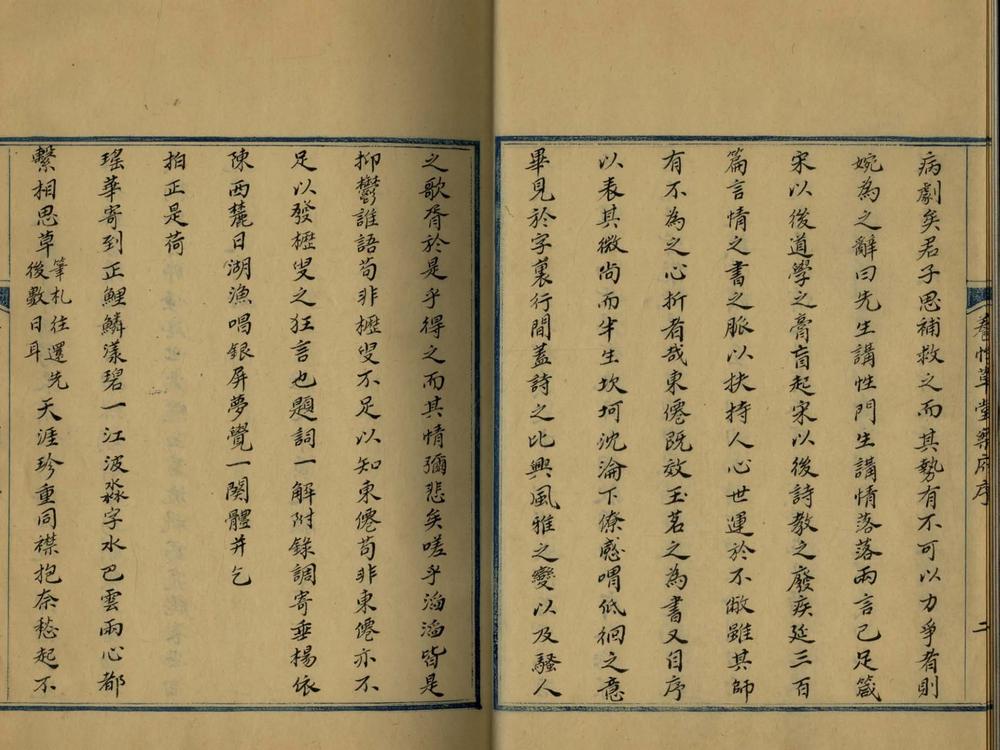 病劇矣君子思補救之而其勢有不可以力爭者則
婉為之辭曰先生講性門生講情落落兩言已足箴
宋以後道學之膏肓起宋以後詩教之廢疾延三百
篇言情之書之脈以扶持人心世運於不敝雖其師
有不為之心折者哉東僊既效玉茗之為書又自序
以表其微尚而半生坎坷沈淪下僚感喟低徊之意
畢見於字裏行間蓋詩之比興風雅之變以及騷人
之歌胥於是乎得之而其情彌悲矣嗟乎滔滔皆是
抑鬱誰語苟非櫪叟不足以知東僊苟非東僊亦不
足以發櫪叟之狂言也題詞一解附錄調寄垂楊依
陳西麓日湖漁唱銀屏夢覺一闋體并乞
拍正是荷
瑤華寄到正鯉鱗漾碧一江波淼字水巴雲雨心都
繫相思草筆札往還先後數日耳天涯珍重同襟抱奈愁起不
養性草堂樂府序
二